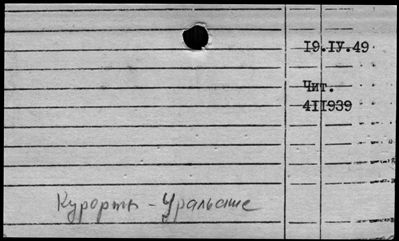 19.IV.49
Чит.
411939
Курорты - Уральские